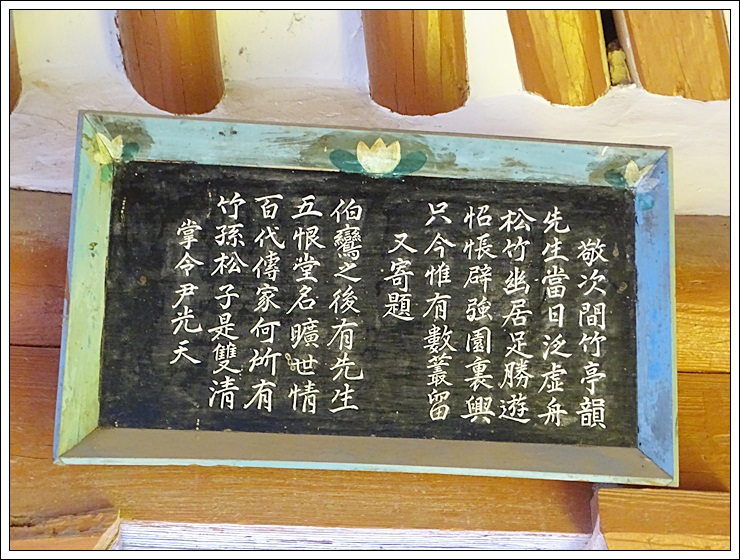 敬次間竹亭韻
先生當日泛虛舟
松竹幽居足勝遊
怊悵辟強園裏興
只今惟有數叢留
又寄題
伯鸞之後有先生
五恨堂名曠世情
百代傳家何所有
竹孫松子是雙清
掌令尹光天